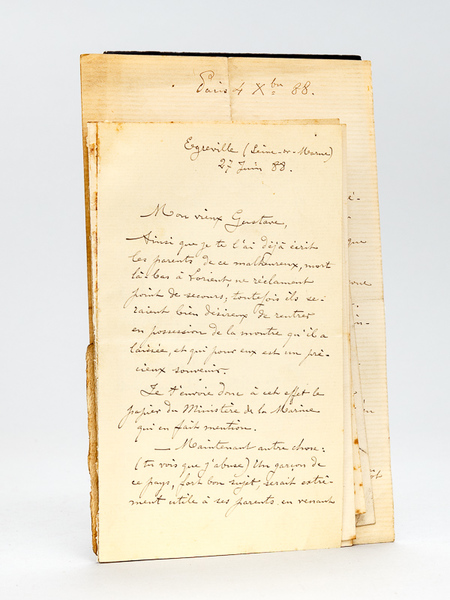 Paris 4 Xbre 88.
Egreville (Seine-et-Marne)
27 Juin 88.
Mon vieux Gustave,
Ainsi que je te l'ai déjà écrit
les parents de ce malheureux, mort
là-bas à Lorient, ne réclament
point de secours, toutefois ils se-
raient bien désireux de rentrer
en possession de la montre qu'il a
laissée, et qui pour eux est un pré-
cieux souvenir.
Je t'envoie donc à cet effet le
papier du Ministère de la Marine
qui en fait mention.
— Maintenant autre chose:
(tu vois que j'abuse) Un garçon de
ce pays, fort bon sujet, serait extrê-
ment utile à ses parents en venant